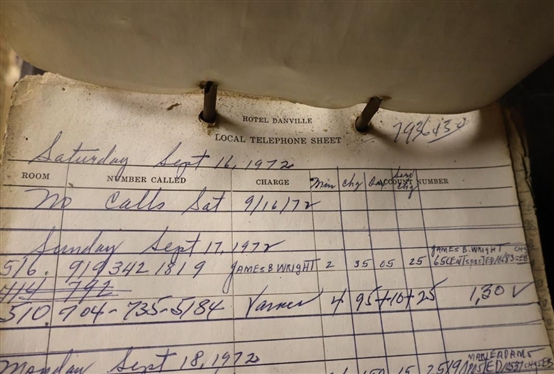 HOTEL DANVILLE
LOCAL TELEPHONE SHEET
Saturday Sept 16, 1972
ROOM NUMBER CALLED CHARGE Min Chg Serv Chg ACCOUNT NUMBER
No Calls Sat 9/16/72
Sunday Sept 17, 1972
516. 919 342 1819 JAMES B WRIGHT 2 35 05 25 JAMES B. WRIGHT
65CENTS POSTED
414 792
310. 704-735-5184 Varner 4 95+10+25 1,30 ✓
Monday Sept 18, 1972